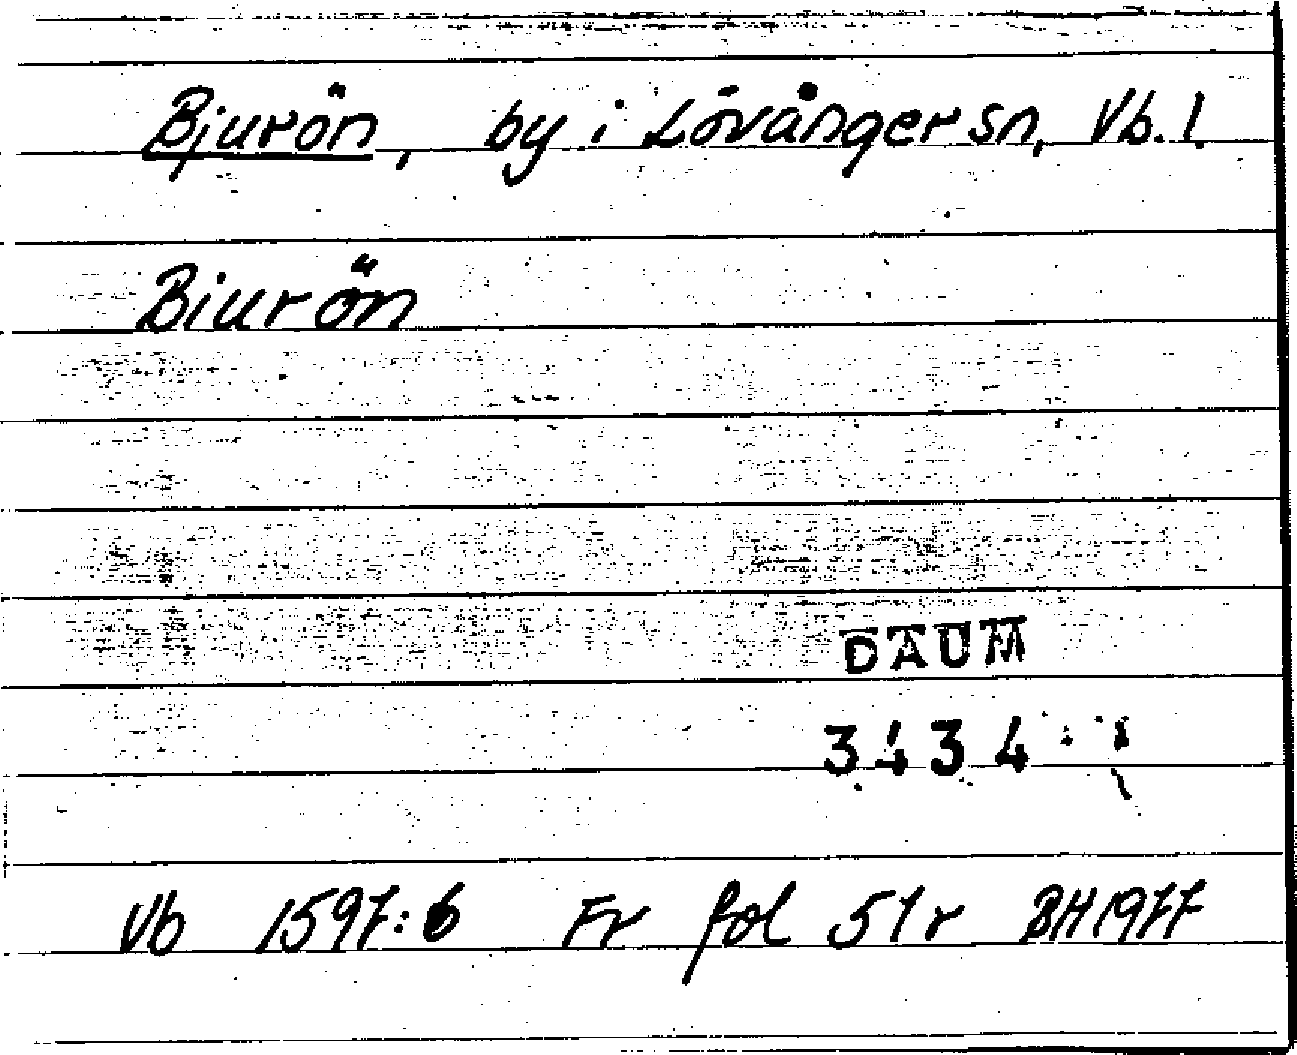 Bjurön, by i Lövånger sn, Vb. l.
Biurön
DAUM
3434:
Vb 1597:6 Fr fol 51r BH 1977